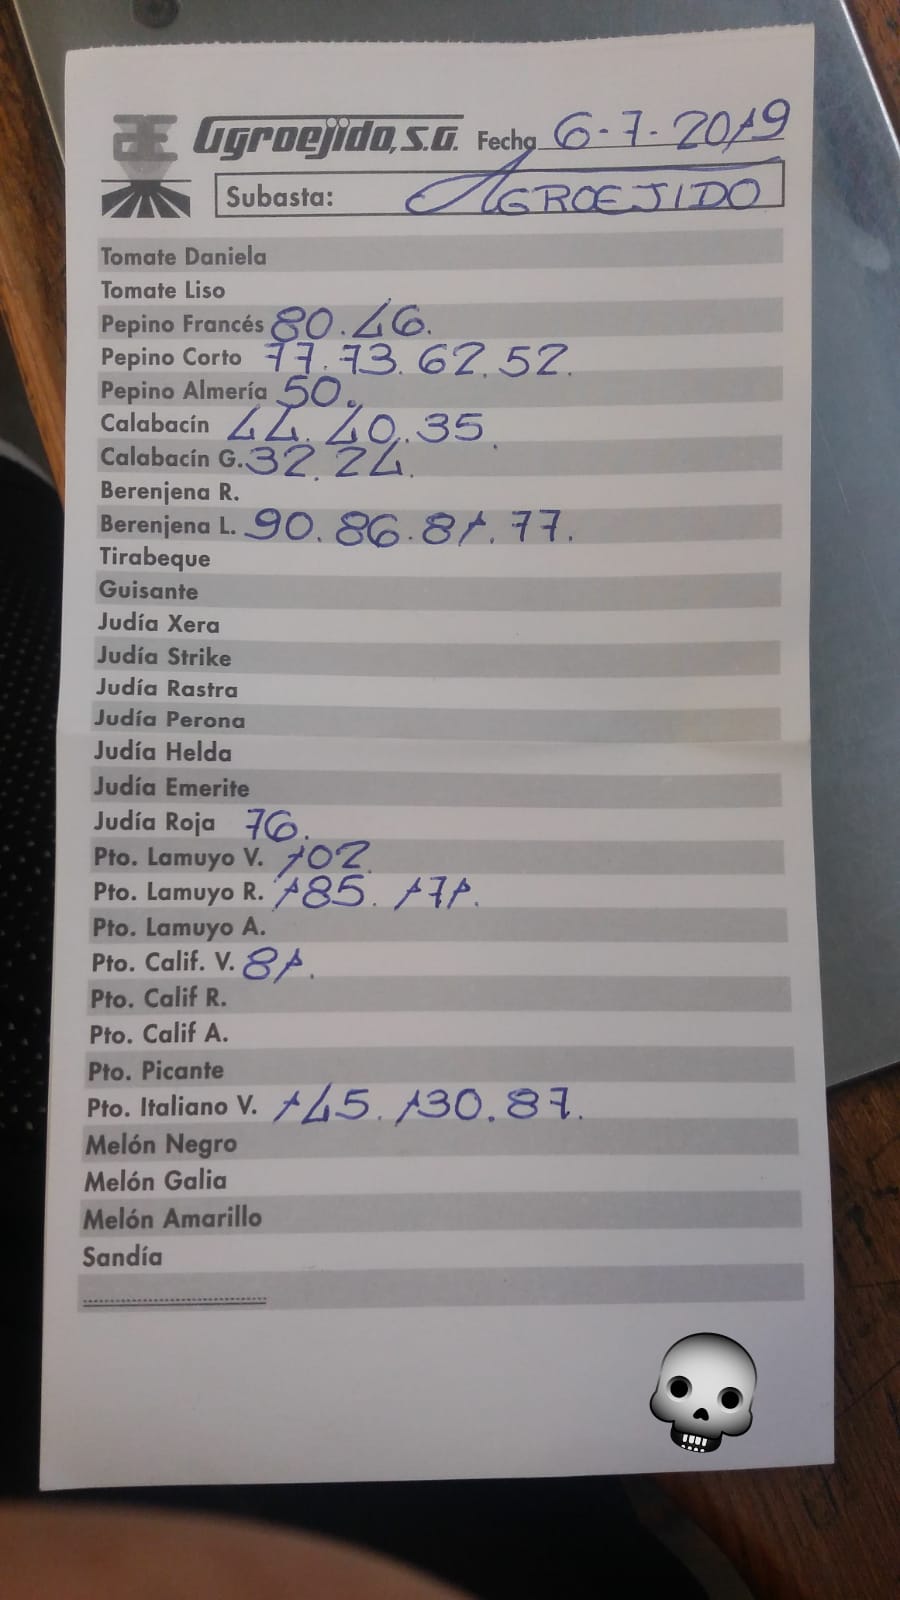 Agroejido, S.A. Fecha 6-7-2019
Subasta: AGROEJIDO
Tomate Daniela
Tomate Liso
Pepino Francés 80.46.
Pepino Corto 77.73.62.52.
Pepino Almería 50.
Calabacín 44.40.35.
Calabacín G. 32.24.
Berenjena R.
Berenjena L. 90.86.81.77.
Tirabeque
Guisante
Judía Xera
Judía Strike
Judía Rastra
Judía Perona
Judía Helda
Judía Emerite
Judía Roja 76.
Pto. Lamuyo V. 102.
Pto. Lamuyo R. 185. 171.
Pto. Lamuyo A.
Pto. Calif. V. 81.
Pto. Calif R.
Pto. Calif A.
Pto. Picante
Pto. Italiano V. 145. 130. 87.
Melón Negro
Melón Galia
Melón Amarillo
Sandía